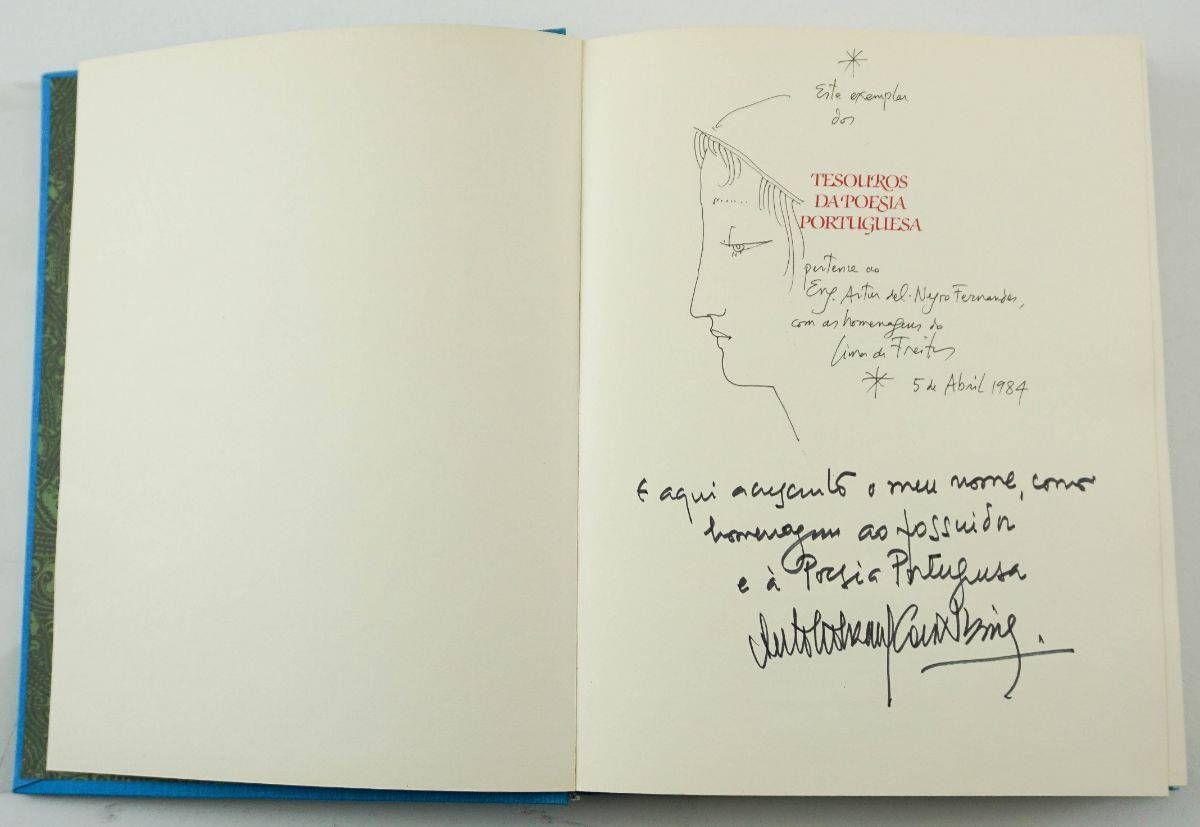 Este exemplar
dos
TESOUROS
DA POESIA
PORTUGUESA
pertence ao
Eng. Artur del-Negro Fernandes,
com as homenagens do
Lima de Freitas
5 de Abril 1984
E aqui acrescento o meu nome, como
homenagem ao possuidor
e à Poesia Portuguesa